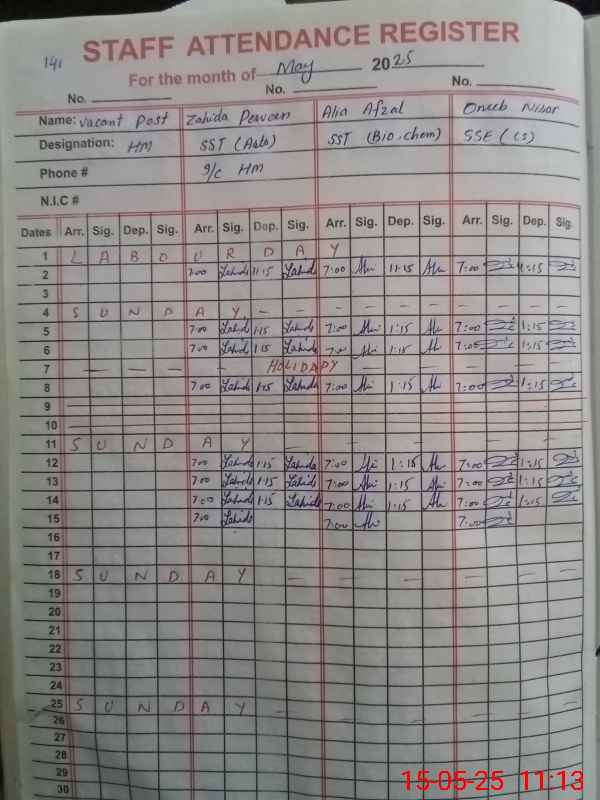 141
STAFF ATTENDANCE REGISTER
For the month of May 2025
No. No. No.
Name: Vacant Post Zahida Perveen Alia Afzal Oneeb Nisar
Designation: HM SST (Arts) SST (Bio.chem) SSE (CS)
Phone # I/C HM
N.I.C #
Dates Arr. Sig. Dep. Sig. Arr. Sig. Dep. Sig. Arr. Sig. Dep. Sig. Arr. Sig. Dep. Sig.
1 L A B O U R D A Y
2 7:00 Zahida 11:15 Zahida 7:00 11:15 7:00 11:15
3
4 S U N D A Y — — — — — — — —
5 7:00 Zahida 1:15 Zahida 7:00 1:15 7:00 1:15
6 7:00 Zahida 1:15 Zahida 7:00 1:15 7:00 1:15
7 — — — — — HOLIDAPY — — — — — —
8 7:00 Zahida 1:15 Zahida 7:00 1:15 7:00 1:15
9
10
11 S U N D A Y
12 7:00 Zahida 1:15 Zahida 7:00 1:15 7:00 1:15
13 7:00 Zahida 1:15 Zahida 7:00 1:15 7:00 1:15
14 7:00 Zahida 1:15 Zahida 7:00 1:15 7:00 1:15
15 7:00 Zahida 7:00 7:00
16
17
18 S U N D A Y — — — — — — —
19
20
21
22
23
24
25 S U N D A Y —
26
27
28
29
30
15-05-25 11:13